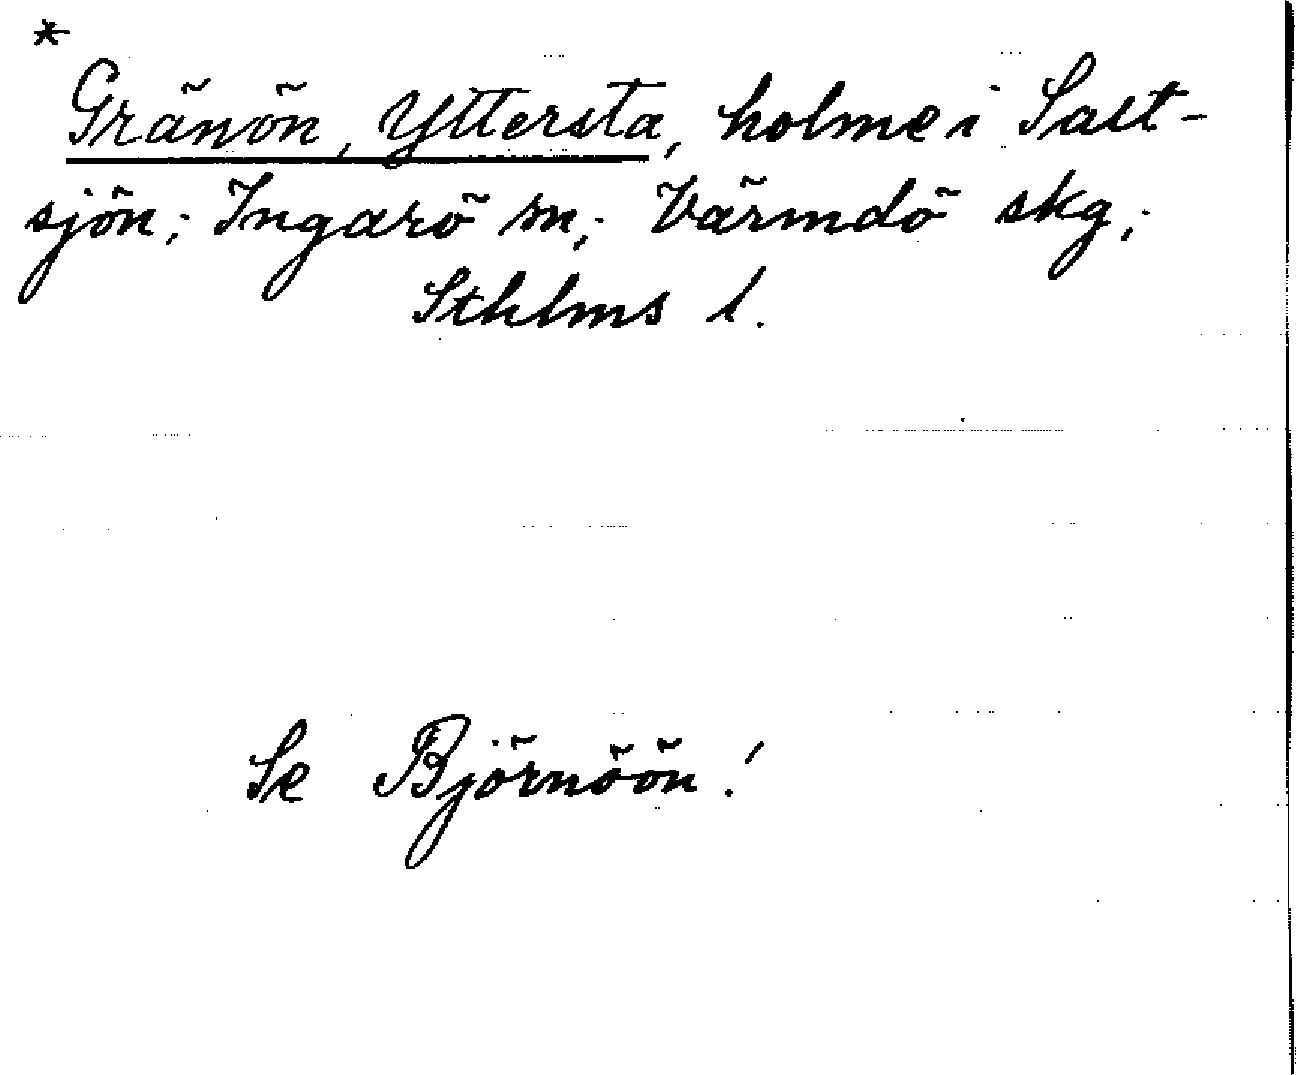 *
Gränön, Yttersta, holme i Salt-
sjön; Ingarö sn; Värmdö skg;
Sthlms l.
Se Björnöön!